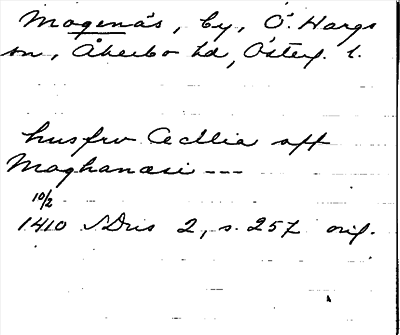 Mogenäs, by, Ö. Hargs
sn, Åkerbo hd, Östergl. l.
husfru Cecilia aff
Moghanæsi ---
10/2
1410 SDns 2, s. 257 orig.